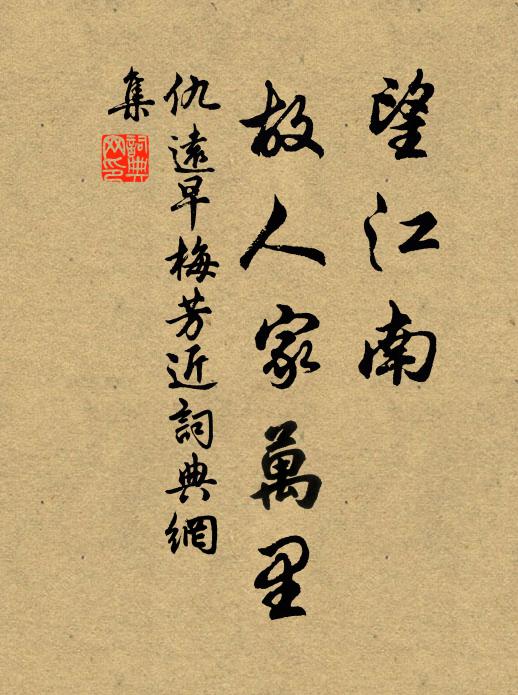 望江南
故人家萬里
仇遠早梅芳近詞典網
集
詞典
网印